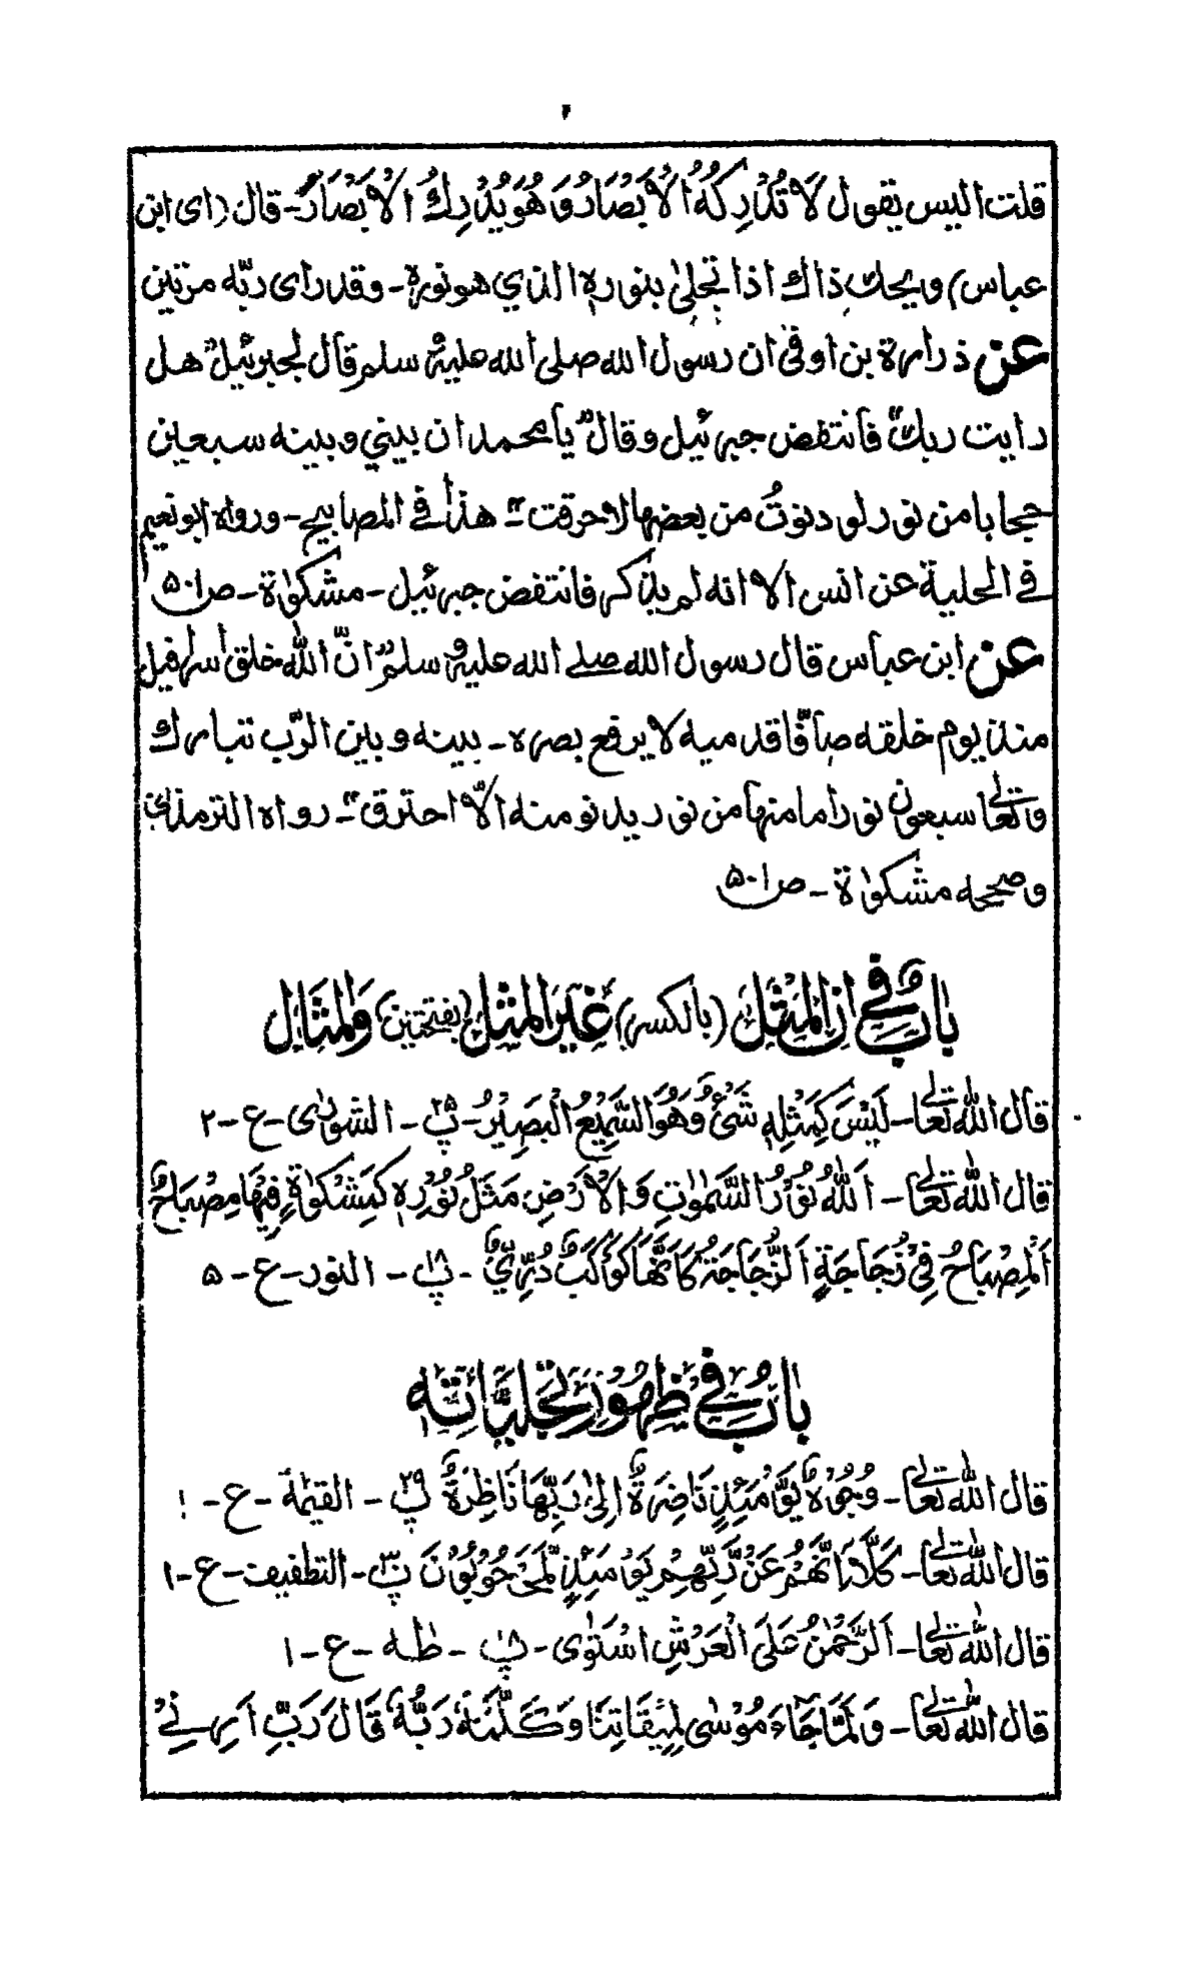 قلت اليس يقول لَا تُدْرِكُهُ الْاَبْصَارُ وَهُوَ يُدْرِكُ الْاَبْصَارَ۔ قال (اى ابن
عباس) ويحك ذاك اذا تجلىٰ بنوره الذي هو نوره۔ وقد راى ربّه مرتين
عن زرارة بن اوفىٰ ان رسول الله صلى الله عليه و سلم قال لجبرئيل" هل
رايت ربك" فانتفض جبرئيل وقال" يا محمد ان بيني وبينه سبعين
حجابا من نور لو دنوتُ من بعضها لاحرقت"۔ هذا في المصابيح۔ ورواه ابو نعيم
في الحلية عن انس الا انه لم يذكر فانتفض جبرئيل۔ مشكوٰة۔ ص ۵۰۱
عن ابن عباس قال رسول الله صلے الله عليه و سلم" انّ الله خلق اسرافيل
منذ يوم خلقه صافّا قدميه لا يرفع بصره۔ بينه وبين الرّب تبارك
وتعالى سبعون نورا ما منها من نور يدنو منه الّا احترق"۔ رواه الترمذي
وصححه مشكوٰة۔ ص ۵۰۱
بابٌ في ان المِثل (بالكسر) غير المثل (بفتحتين) والمثال
قال الله تعالى۔ لَيْسَ كَمِثْلِهٖ شَیْءٌ وَهُوَ السَّمِيْعُ الْبَصِيْرُ۔ پ ۲۵۔ الشورٰى۔ ع۔ ۲
قال الله تعالى۔ اَللهُ نُوْرُ السَّمٰوٰتِ وَالْاَرْضِ مَثَلُ نُوْرِهٖ كَمِشْكٰوةٍ فِيْهَا مِصْبَاحٌ
اَلْمِصْبَاحُ فِيْ زُجَاجَةٍ اَلزُّجَاجَةُ كَاَنَّهَا كَوْكَبٌ دُرِّيٌّ۔ پ ۱۸۔ النور۔ ع۔ ۵
بابٌ في ظهور تجلياته
قال الله تعالى۔ وُجُوْهٌ يَّوْمَئِذٍ نَاضِرَةٌ اِلىٰ رَبِّهَا نَاظِرَةٌ پ ۲۹۔ القيٰمة۔ ع۔ ۱
قال الله تعالى۔ كَلَّا اِنَّهُمْ عَنْ رَّبِّهِمْ يَوْمَئِذٍ لَّمَحْجُوْبُوْنَ پ ۳۰۔ التطفيف۔ ع۔ ۱
قال الله تعالى۔ اَلرَّحْمٰنُ عَلَى الْعَرْشِ اسْتَوٰى۔ پ ۱۶۔ طٰه۔ ع۔ ۱
قال الله تعالى۔ وَلَمَّا جَاءَ مُوْسٰى لِمِيْقَاتِنَا وَكَلَّمَهٗ رَبُّهٗ قَالَ رَبِّ اَرِنِيْ